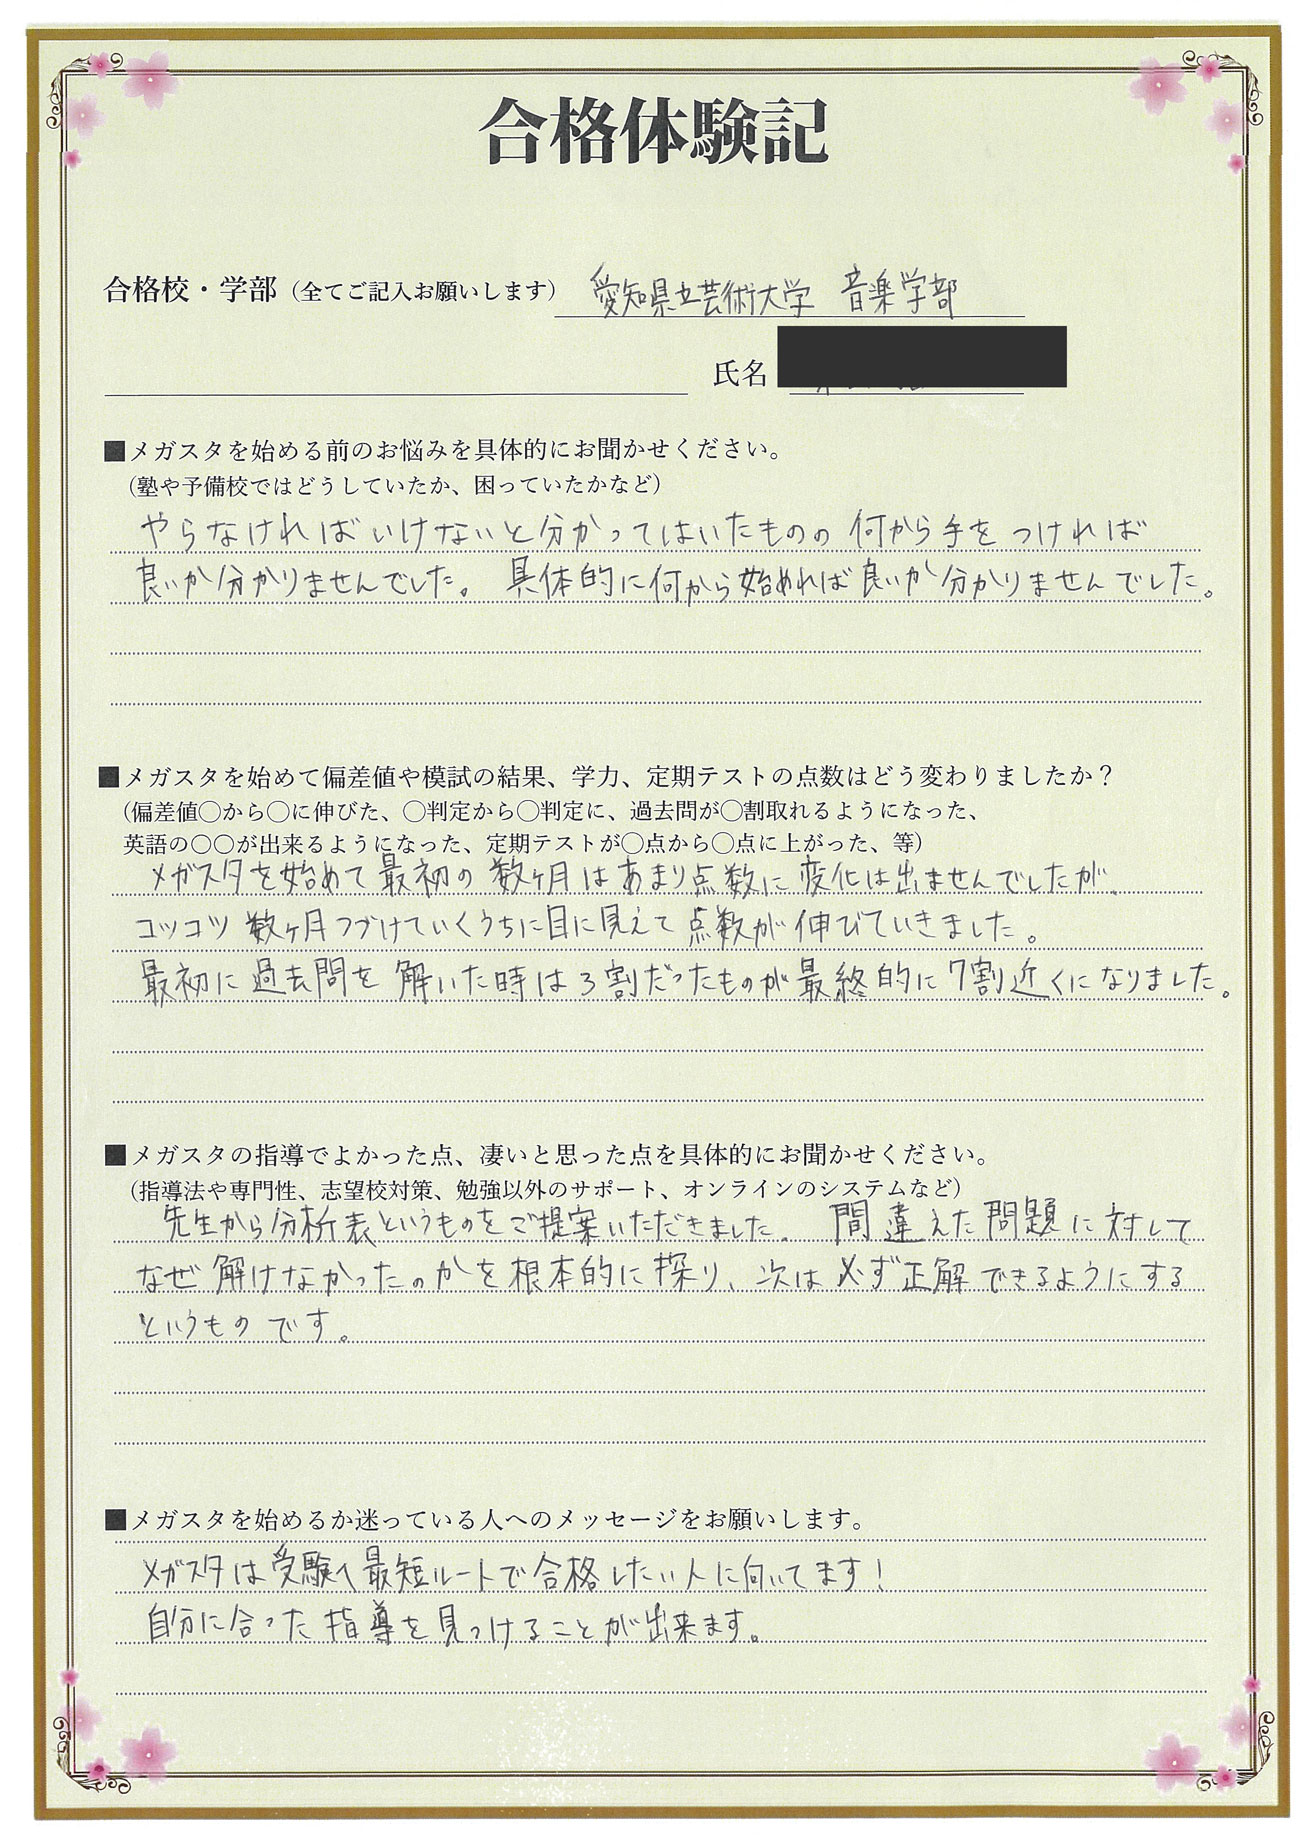 合格体験記
合格校・学部（全てご記入お願いします） 愛知県立芸術大学 音楽学部
氏名
■メガスタを始める前のお悩みを具体的にお聞かせください。
（塾や予備校ではどうしていたか、困っていたかなど）
やらなければいけないと分かってはいたものの 何から手をつければ
良いか分かりませんでした。 具体的に何から始めれば良いか分かりませんでした。
■メガスタを始めて偏差値や模試の結果、学力、定期テストの点数はどう変わりましたか？
（偏差値〇から〇に伸びた、〇判定から〇判定に、過去問が〇割取れるようになった、
英語の〇〇が出来るようになった、定期テストが〇点から〇点に上がった、等）
メガスタを始めて最初の数ヶ月はあまり点数に変化は出ませんでしたが、
コツコツ数ヶ月つづけていくうちに目に見えて点数が伸びていきました。
最初に過去問を解いた時は3割だったものが最終的に7割近くになりました。
■メガスタの指導でよかった点、凄いと思った点を具体的にお聞かせください。
（指導法や専門性、志望校対策、勉強以外のサポート、オンラインのシステムなど）
先生から分析表というものをご提案いただきました。 間違えた問題に対して
なぜ解けなかったのかを根本的に探り、次は必ず正解できるようにする
というものです。
■メガスタを始めるか迷っている人へのメッセージをお願いします。
メガスタは受験へ最短ルートで合格したい人に向いてます！
自分に合った指導を見つけることが出来ます。